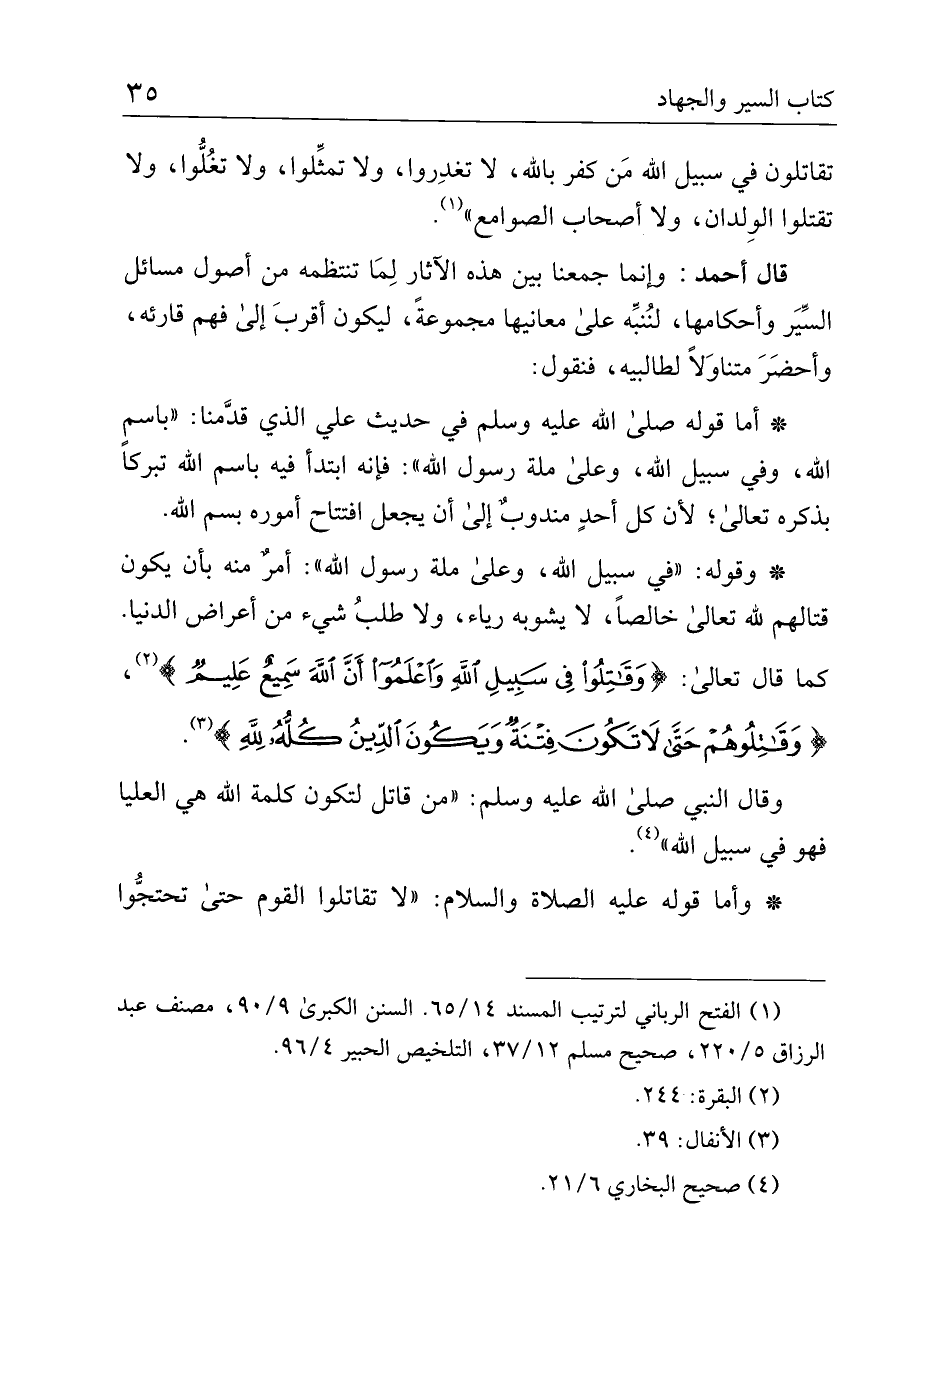 كتاب السير والجهاد ٣٥
تقاتلون في سبيل الله مَن كفر بالله، لا تغدِروا، ولا تمثِّلوا، ولا تغُلُّوا، ولا
تقتلوا الوِلدان، ولا أصحاب الصوامع»(١).
قال أحمد : وإنما جمعنا بين هذه الآثار لِمَا تنتظمه من أصول مسائل
السِّيَر وأحكامها، لنُنبِّه علىٰ معانيها مجموعةً، ليكون أقربَ إلىٰ فهم قارئه،
وأحضَرَ متناوَلاً لطالبيه، فنقول:
* أما قوله صلىٰ الله عليه وسلم في حديث علي الذي قدَّمنا: «باسم
الله، وفي سبيل الله، وعلىٰ ملة رسول الله»: فإنه ابتدأ فيه باسم الله تبركاً
بذكره تعالىٰ؛ لأن كل أحدٍ مندوبٌ إلىٰ أن يجعل افتتاح أموره بسم الله.
* وقوله: «في سبيل الله، وعلىٰ ملة رسول الله»: أمرٌ منه بأن يكون
قتالهم لله تعالىٰ خالصاً، لا يشوبه رياء، ولا طلبُ شيء من أعراض الدنيا.
كما قال تعالىٰ: ﴿وَقَٰتِلُوا۟ فِى سَبِيلِ ٱللَّهِ وَٱعْلَمُوٓا۟ أَنَّ ٱللَّهَ سَمِيعٌ عَلِيمٌ﴾(٢)،
﴿وَقَٰتِلُوهُمْ حَتَّىٰ لَا تَكُونَ فِتْنَةٌ وَيَكُونَ ٱلدِّينُ كُلُّهُۥ لِلَّهِ﴾(٣).
وقال النبي صلىٰ الله عليه وسلم: «من قاتل لتكون كلمة الله هي العليا
فهو في سبيل الله»(٤).
* وأما قوله عليه الصلاة والسلام: «لا تقاتلوا القوم حتىٰ تحتجُّوا
(١) الفتح الرباني لترتيب المسند ٦٥/١٤. السنن الكبرىٰ ٩٠/٩، مصنف عبد
الرزاق ٢٢٠/٥، صحيح مسلم ٣٧/١٢، التلخيص الحبير ٩٦/٤.
(٢) البقرة: ٢٤٤.
(٣) الأنفال: ٣٩.
(٤) صحيح البخاري ٢١/٦.